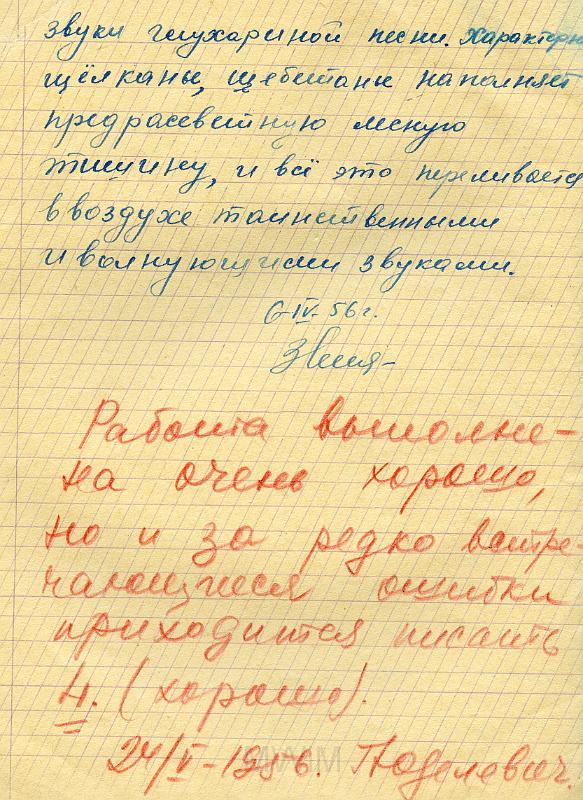 звуки глухариной песни. Характерн
щёлканье, щебетанье наполняет
предрассветную лесную
тишину, и всё это переливается
в воздухе таинственными
и волнующими звуками.
6-IV-56 г.
Работа выполне-
на очень хорошо,
но и за редко встре-
чающиеся ошибки
приходится писать
4. (хорошо).
24/V-195 г. Подлевич.